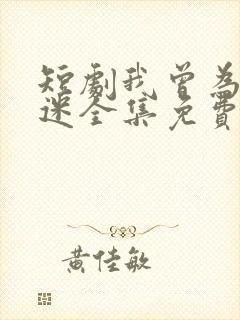 短劇我曾為
迷全集免費
黃佳敏